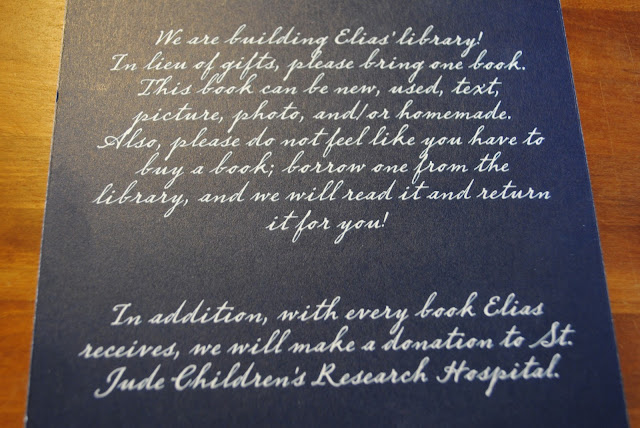 We are building Elias' library!
In lieu of gifts, please bring one book.
This book can be new, used, text,
picture, photo, and/or homemade.
Also, please do not feel like you have to
buy a book; borrow one from the
library, and we will read it and return
it for you!
In addition, with every book Elias
receives, we will make a donation to St.
Jude Children's Research Hospital.